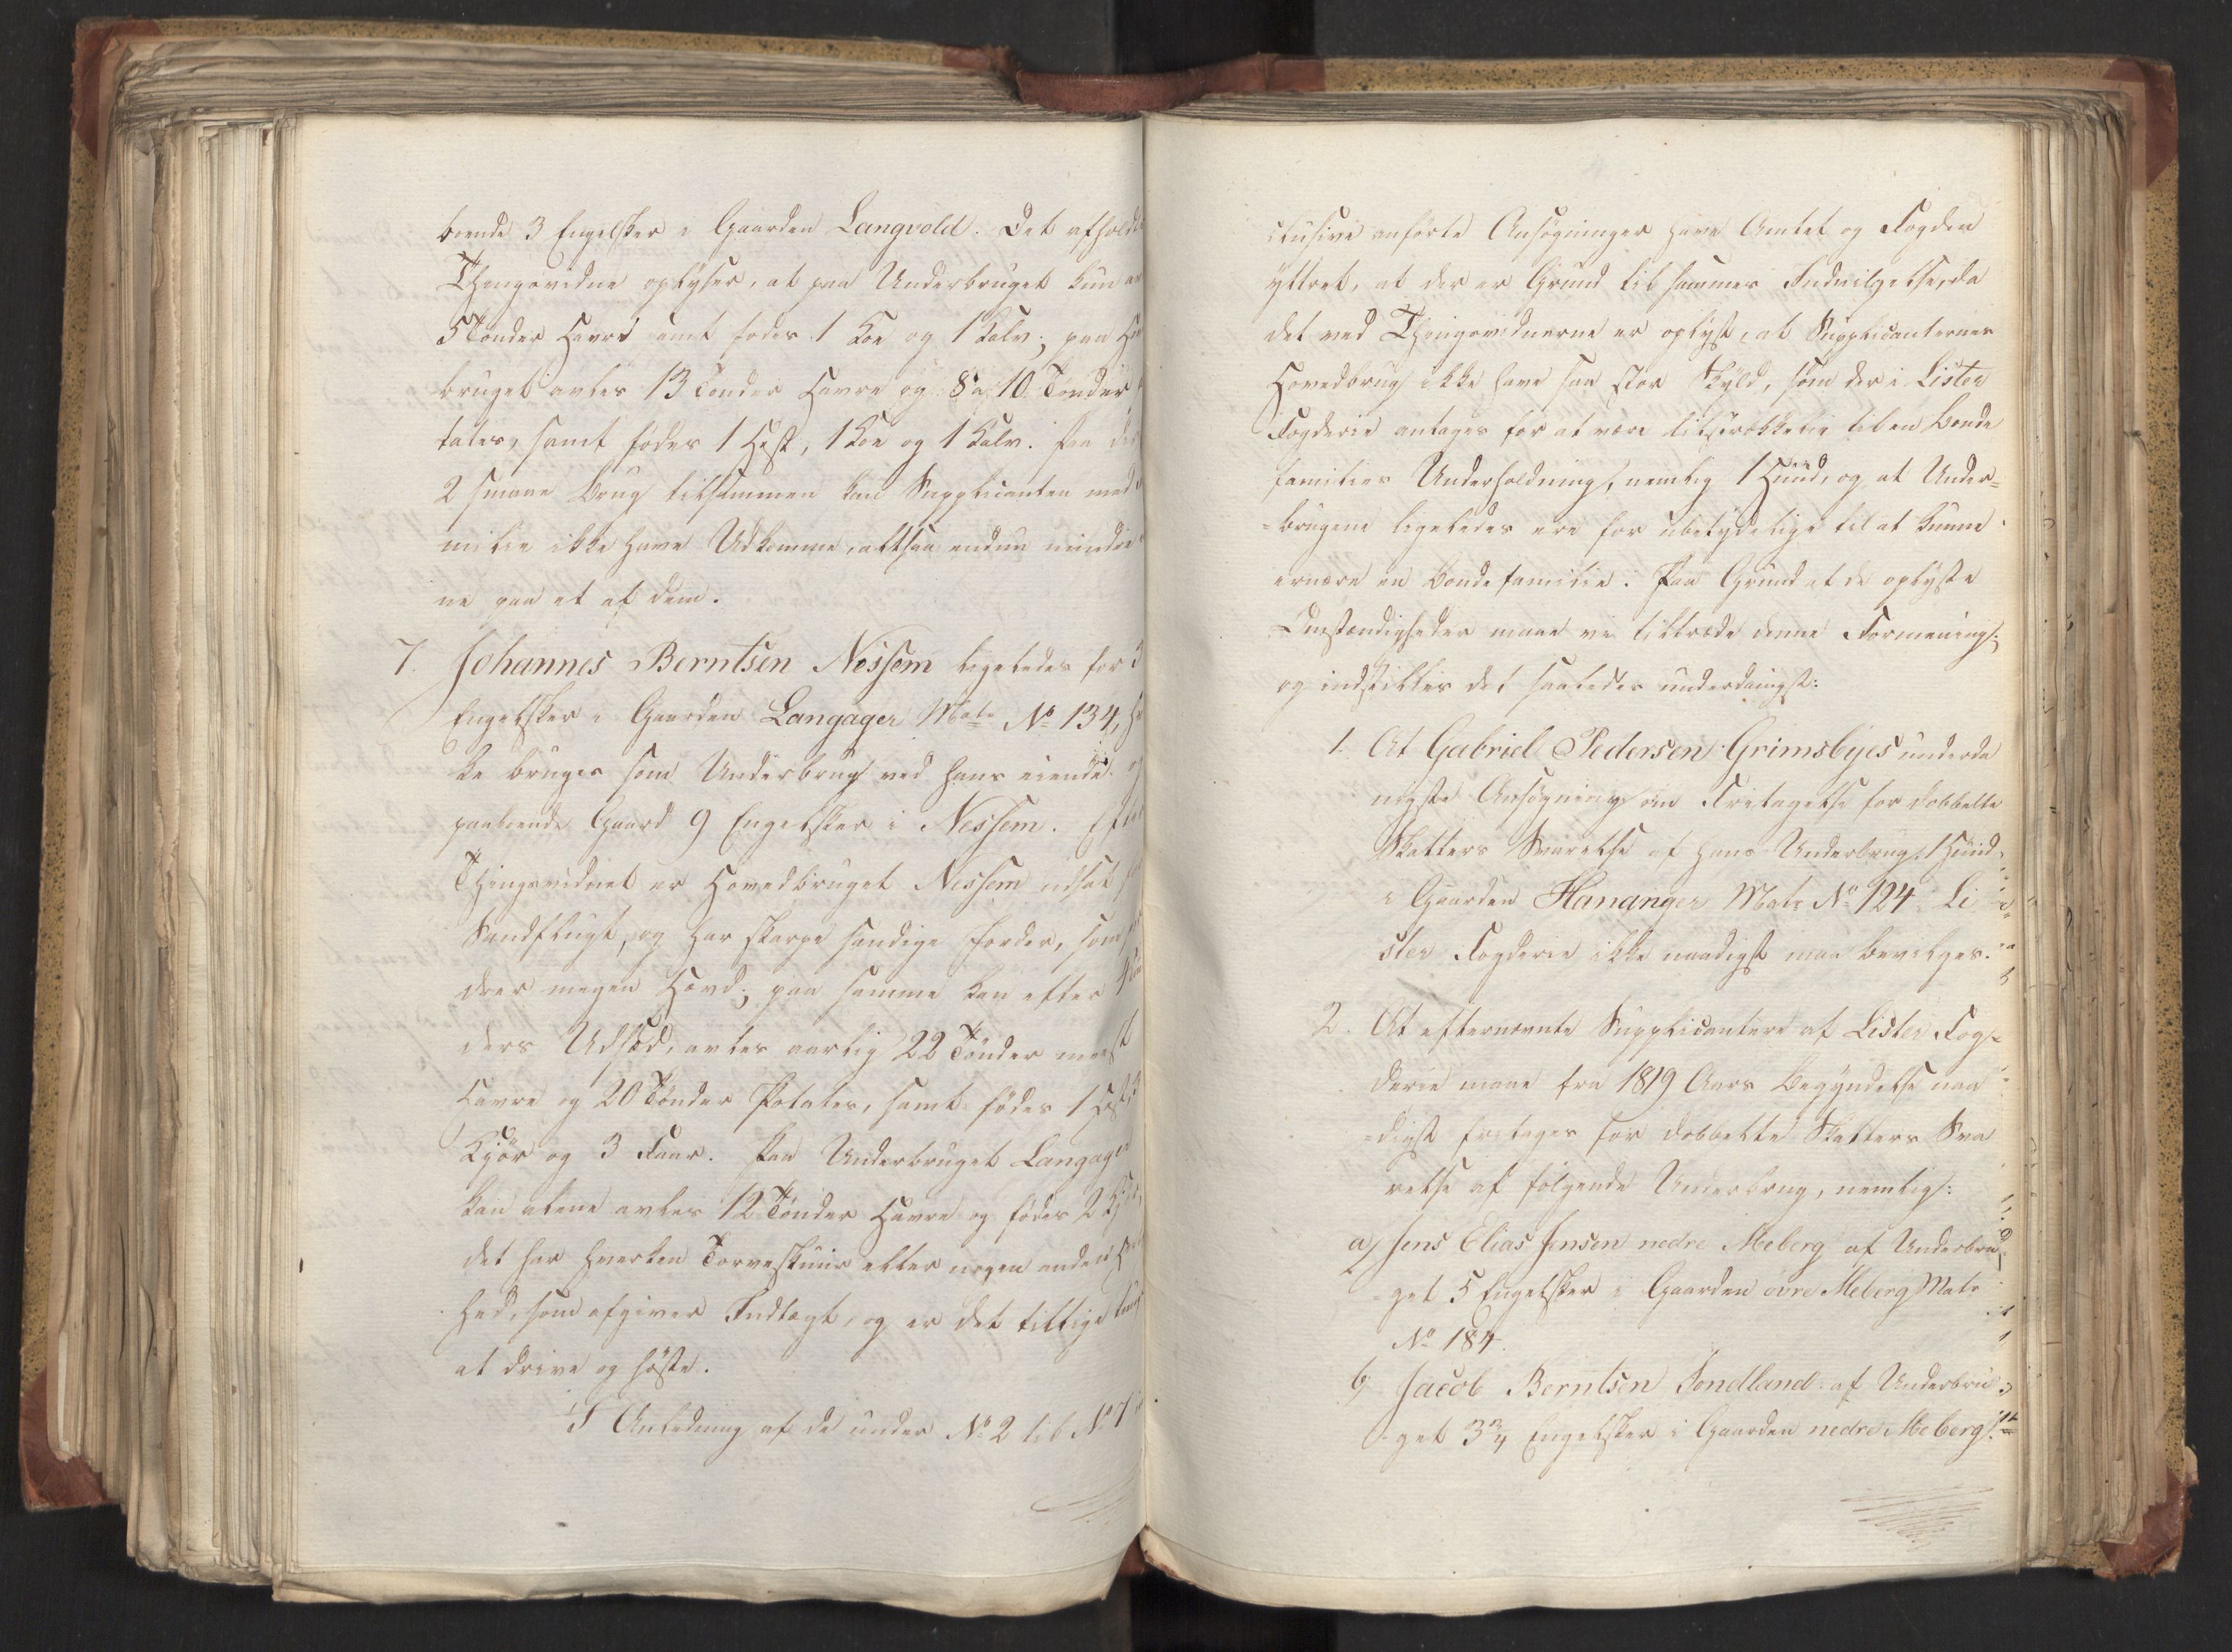 boende 3 Engelsker i Gaarden Langvold. Det afholdte
Thingsvidne oplyser, at paa Underbruget kun av
5 Tønder Havre samt fødes 1 Koe og 1 Kalv; paa
bruget avles 13 Tønder Havre og 8 a 10 Tønder
tates, samt fødes 1 Hest, 1 Koe og 1 Kalv. Paa de
2 smaae Brug tilsammen kan Supplicanten med
milie ikke have Udkomme, altsaa endnu mindre
ne paa et af dem.
7. Johannes Berntsen Nessem ligeledes for 3
Engelsker i Gaarden Langager Matr. No 134,
ke bruges som Underbrug ved hans eiende og
paaboende Gaard 9 Engelsker i Nessem. Efter
Thingsvidnet er Hovedbruget Nessem udsat for
Sandflugt, og har skarpe sandige Jorder, som
drer megen Hævd; paa samme kan efter
ders Udsæd, avles aarlig 22 Tønder meest
Havre og 20 Tønder Potates, samt fødes 1 Hest,
Kjør og 3 Faar. Paa Underbruget Langager
kan alene avles 12 Tønder Havre og fødes 2
det har hverken Torveskuur eller nogen anden
hed, som afgiver Indtægt, og er det tillige
at drive og høste.
I Anledning af de under No 2 til No 7
clusive anførte Ansøgninger have Amtet og Fogden
yttret, at der er Grund til sammes Indvilgelse, da
det ved Thingsvidnerne er oplyst, at Supplicanternes
Hovedbrug ikke have saa stor Skyld, som der i Lister
Fogderie antages for at være tilstrækkelig til en Bonde
families Underholdning, nemlig 1 Huud, og at Under-
-brugene ligeledes ere for ubetydelige til at kunne
ernære en Bondefamilie. Paa Grund af de oplyste
Omstændigheder maae vi tiltræde denne Formening;
og indstilles det saaledes underdanigst:
1. At Gabriel Pedersen Grimsbyes underda
nigste Ansøgning om Fritagelse for dobbelte
Skatters Svarelse af hans Underbrug 1 Huud
i Gaarden Hananger Matr No 124 Li
ster Fogderie ikke naadigst maa bevilges.
2. At efternævnte Supplicantere af Lister Fog-
derie maae fra 1819 Aars Begyndelse naa
-digst fritages for dobbelte Skatters Sva
relse af følgende Underbrug, nemlig:
a) Jens Elias Jensen nedre Meberg af Underbru
-get 5 Engelsker i Gaarden øvre Meberg Matr
No 184.
b) Jacob Berntsen Sondland af Underbru
-get 3 3/4 Engelsker i Gaarden nedre Meberg